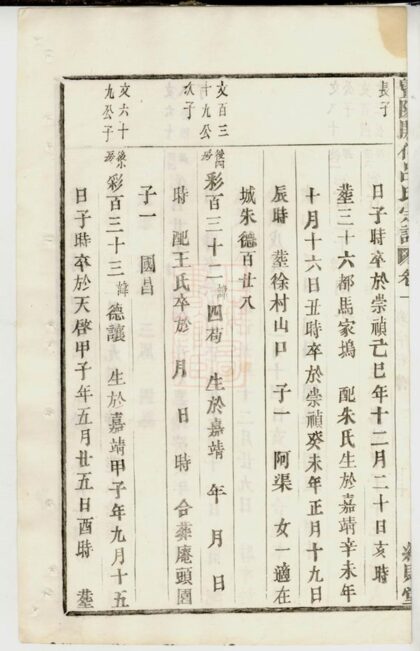 日子時卒於崇禎己巳年十二月二十日亥時
塟三十六都馬家塢 配朱氏生於嘉靖辛未年
十月十六日丑時卒於崇禎癸未年正月十九日
辰時 塟徐村山口 子一 阿渠 女一適在
城朱德百廿八
彩百三十二諱四苟 生於嘉靖 年 月 日
時 配王氏卒於 月 日 時 合葬庵頭園
子一 國昌
彩百三十三諱德讓 生於嘉靖甲子年九月十五
日子時卒於天啓甲子年五月廿五日酉時 塟
長子
文百三
十九公
次子
文六十
九公子